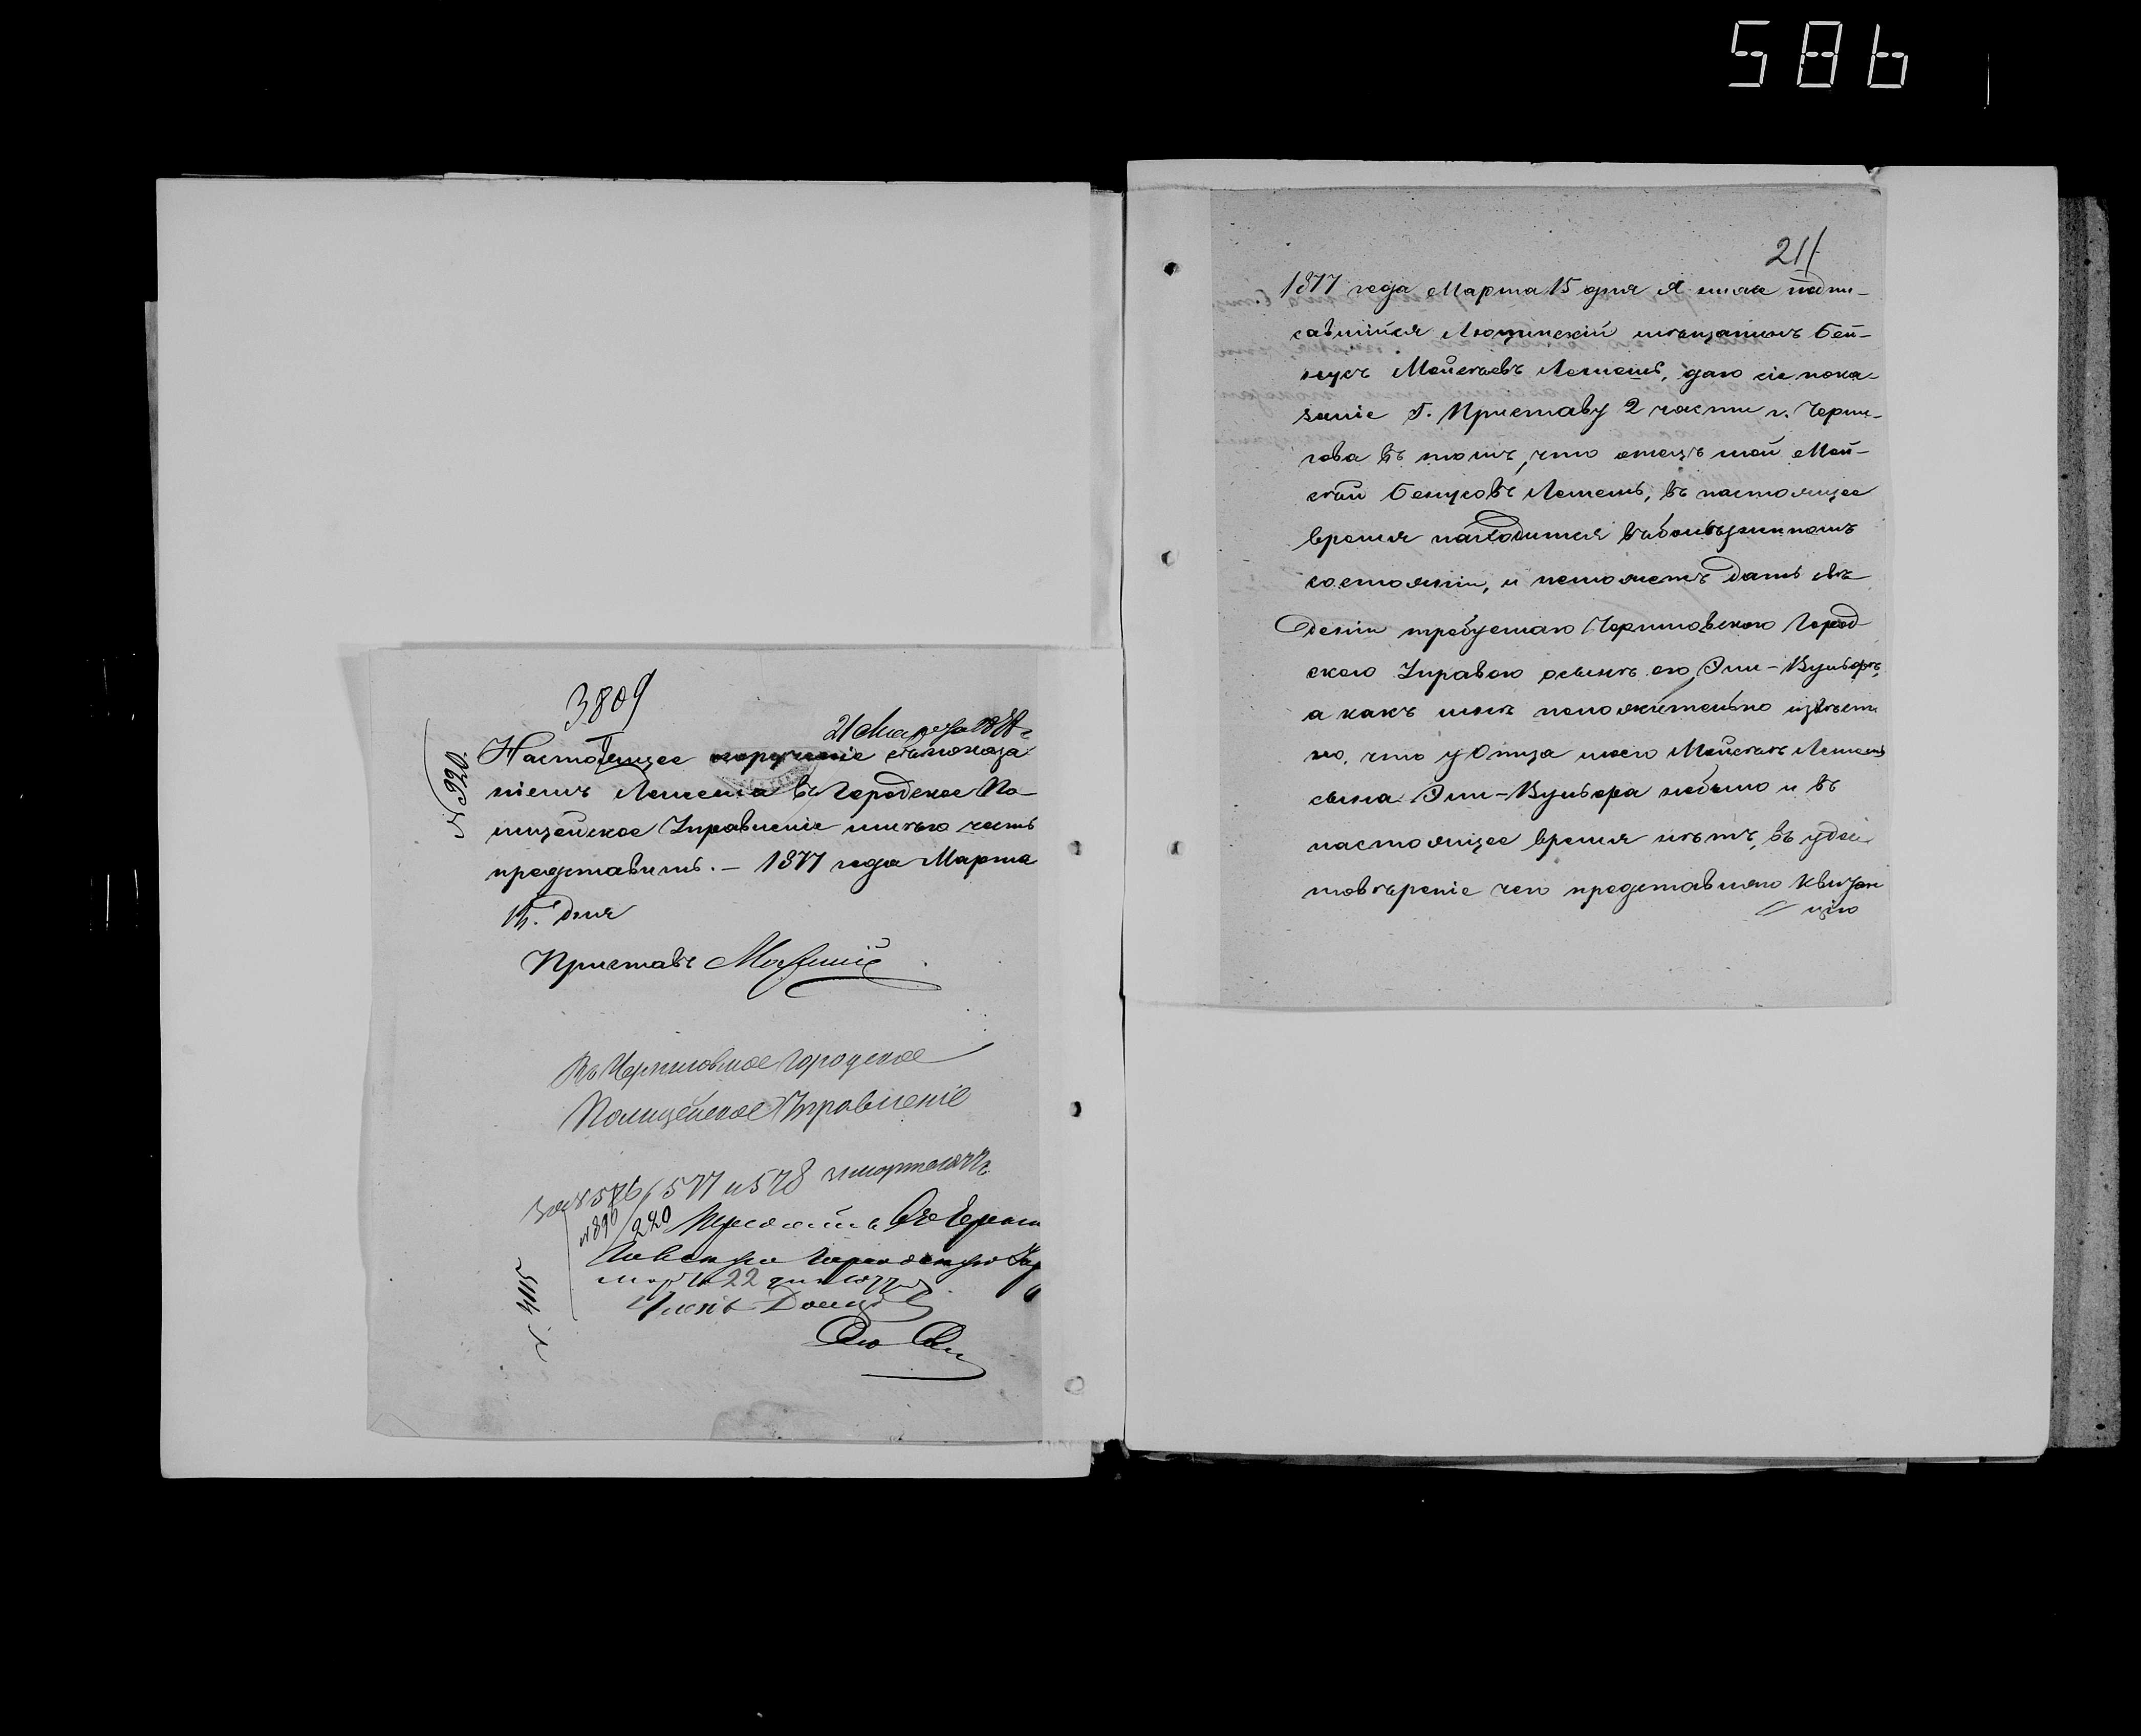 586
3809
21 Марта 1877
№ 920.
Настоящее порученіе съ показа
ніемъ Лемеша въ Городское По-
лицейское Управленіе имѣю честь
представить. – 1877 года Марта
15. дня
Приставъ
Въ Черниговское Городское
Полицейское Управленіе
577 и 578
№ 890
220
Городскую
22 дня
№ 4115
211
1877 года Марта 15 дня Я ниже подпи-
савшійся Люцинскій мѣщанинъ Бей-
Мойсѣевъ Лемешъ, даю сіе пока-
заніе Г. Приставу 2 части г. Черни-
гова въ томъ, что отецъ мой Мой-
сѣй Лемешъ, въ настоящее
время находится въ болѣзненномъ
состояніи, и неможетъ дать свѣ-
денія требуемаго Черниговскою Город
скою Управою осынѣ его Эли-Вульфѣ,
а какъ мнѣ положительно извѣстно
но, что у Отца моего Мойсѣя Лемеша
сына Эли-Вульфа небыло и въ
настоящее время нѣтъ, въ удос
товѣреніе чего представляю Квитан
цію